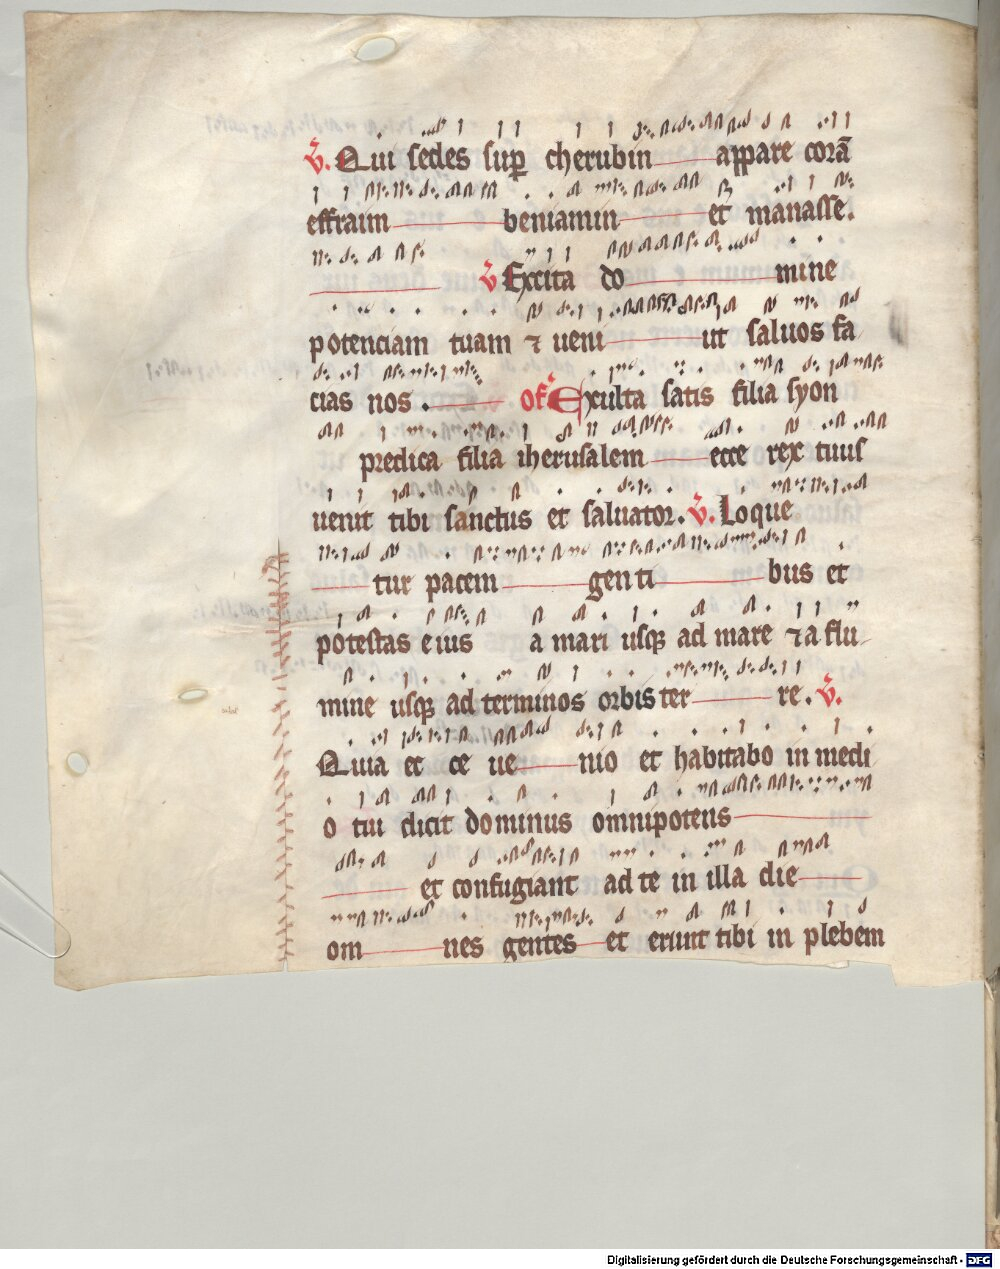 V̄. Qui sedes sup̱ cherubin appare corā
effraim beniamin et manasse.
V̄ Excita do mine
potenciam tuam ⁊ ueni ut saluos fa
cias nos . of̄ Exulta satis filia syon
predica filia iherusalem ecce rex tuus
uenit tibi sanctus et saluator. V̄. Loque
tur pacem gen ti bus et
potestas eius a mari usqꝫ ad mare ⁊ a flu
mine usqꝫ ad terminos orbis ter re. V̄.
Quia et ce ue nio et habitabo in medi
o tui dicit dominus omnipotens
et confugiant ad te in illa die
om nes gentes et erunt tibi in plebem
Digitalisierung gefördert durch die Deutsche Forschungsgemeinschaft - DFG